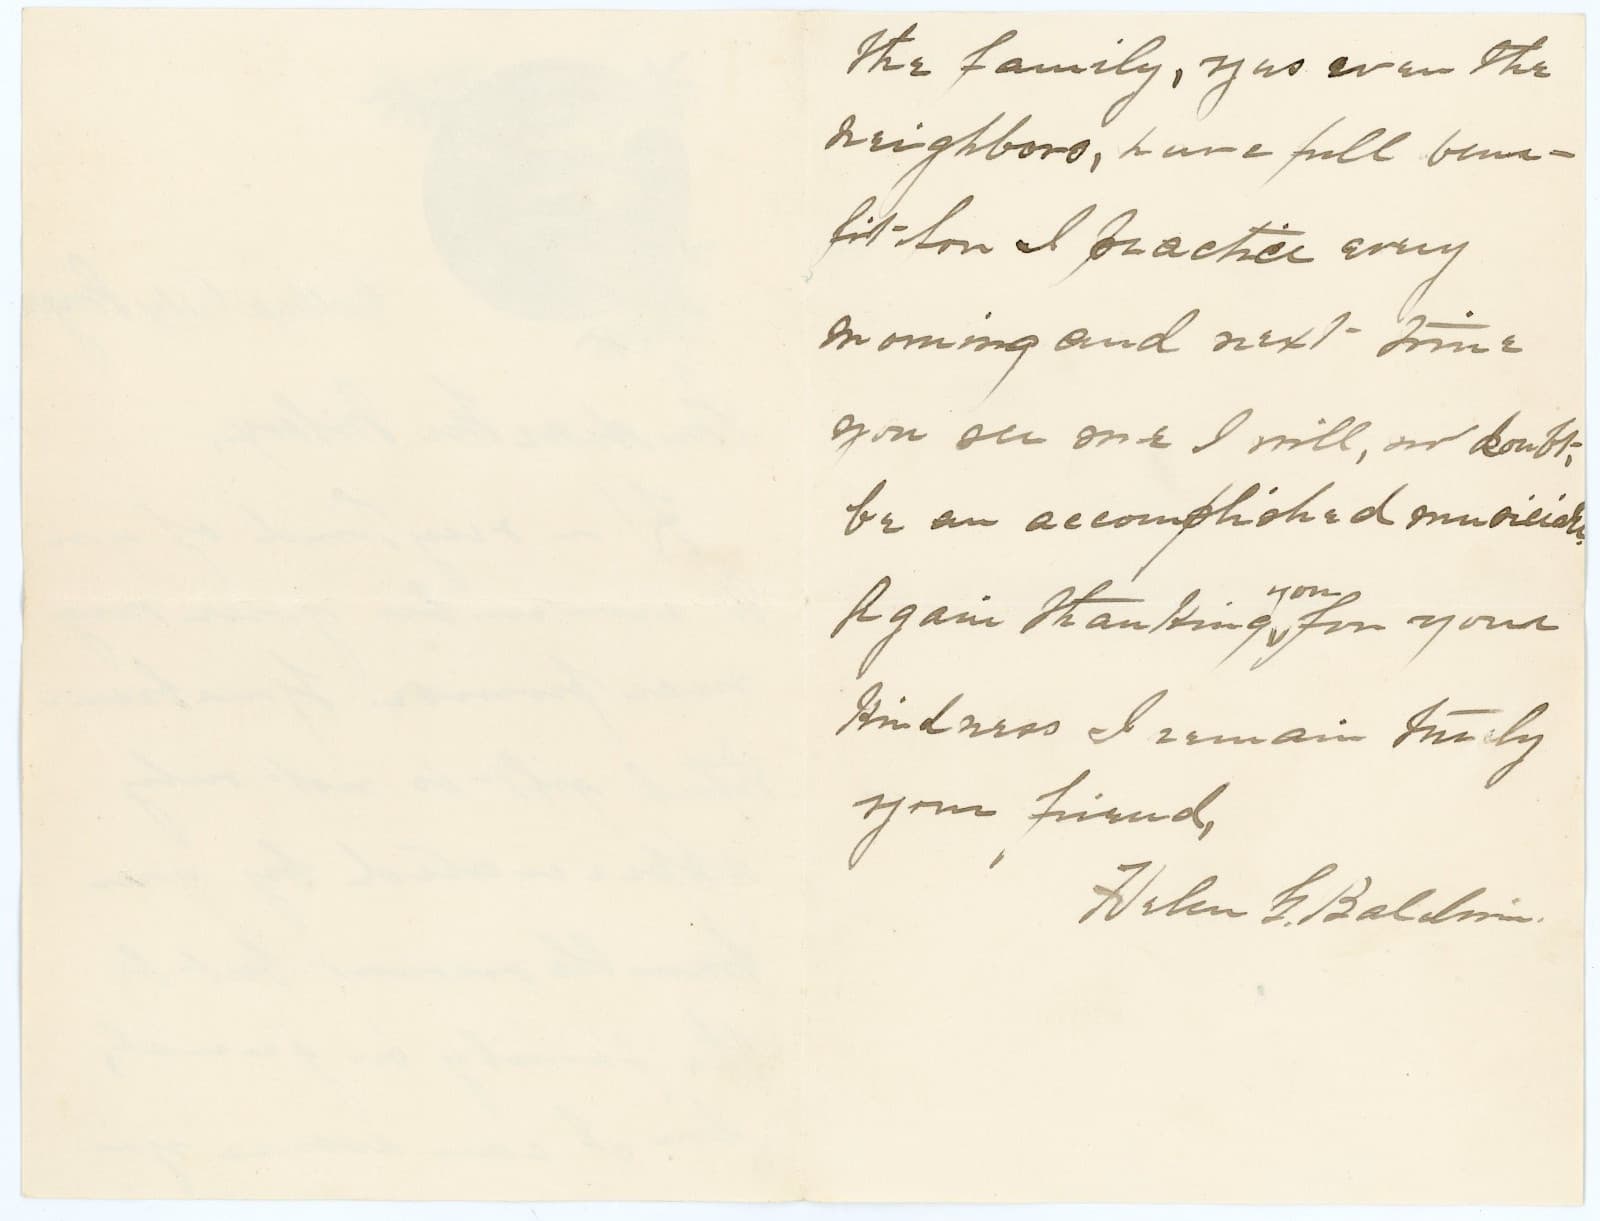 the family, yes even the
neighbors, have full bene-
fit for I practice every
morning and next time
you see me I will, no doubt,
be an accomplished musician.
Again thanking you for your
kindness I remain truly
your friend,
Helen G. Baldwin.